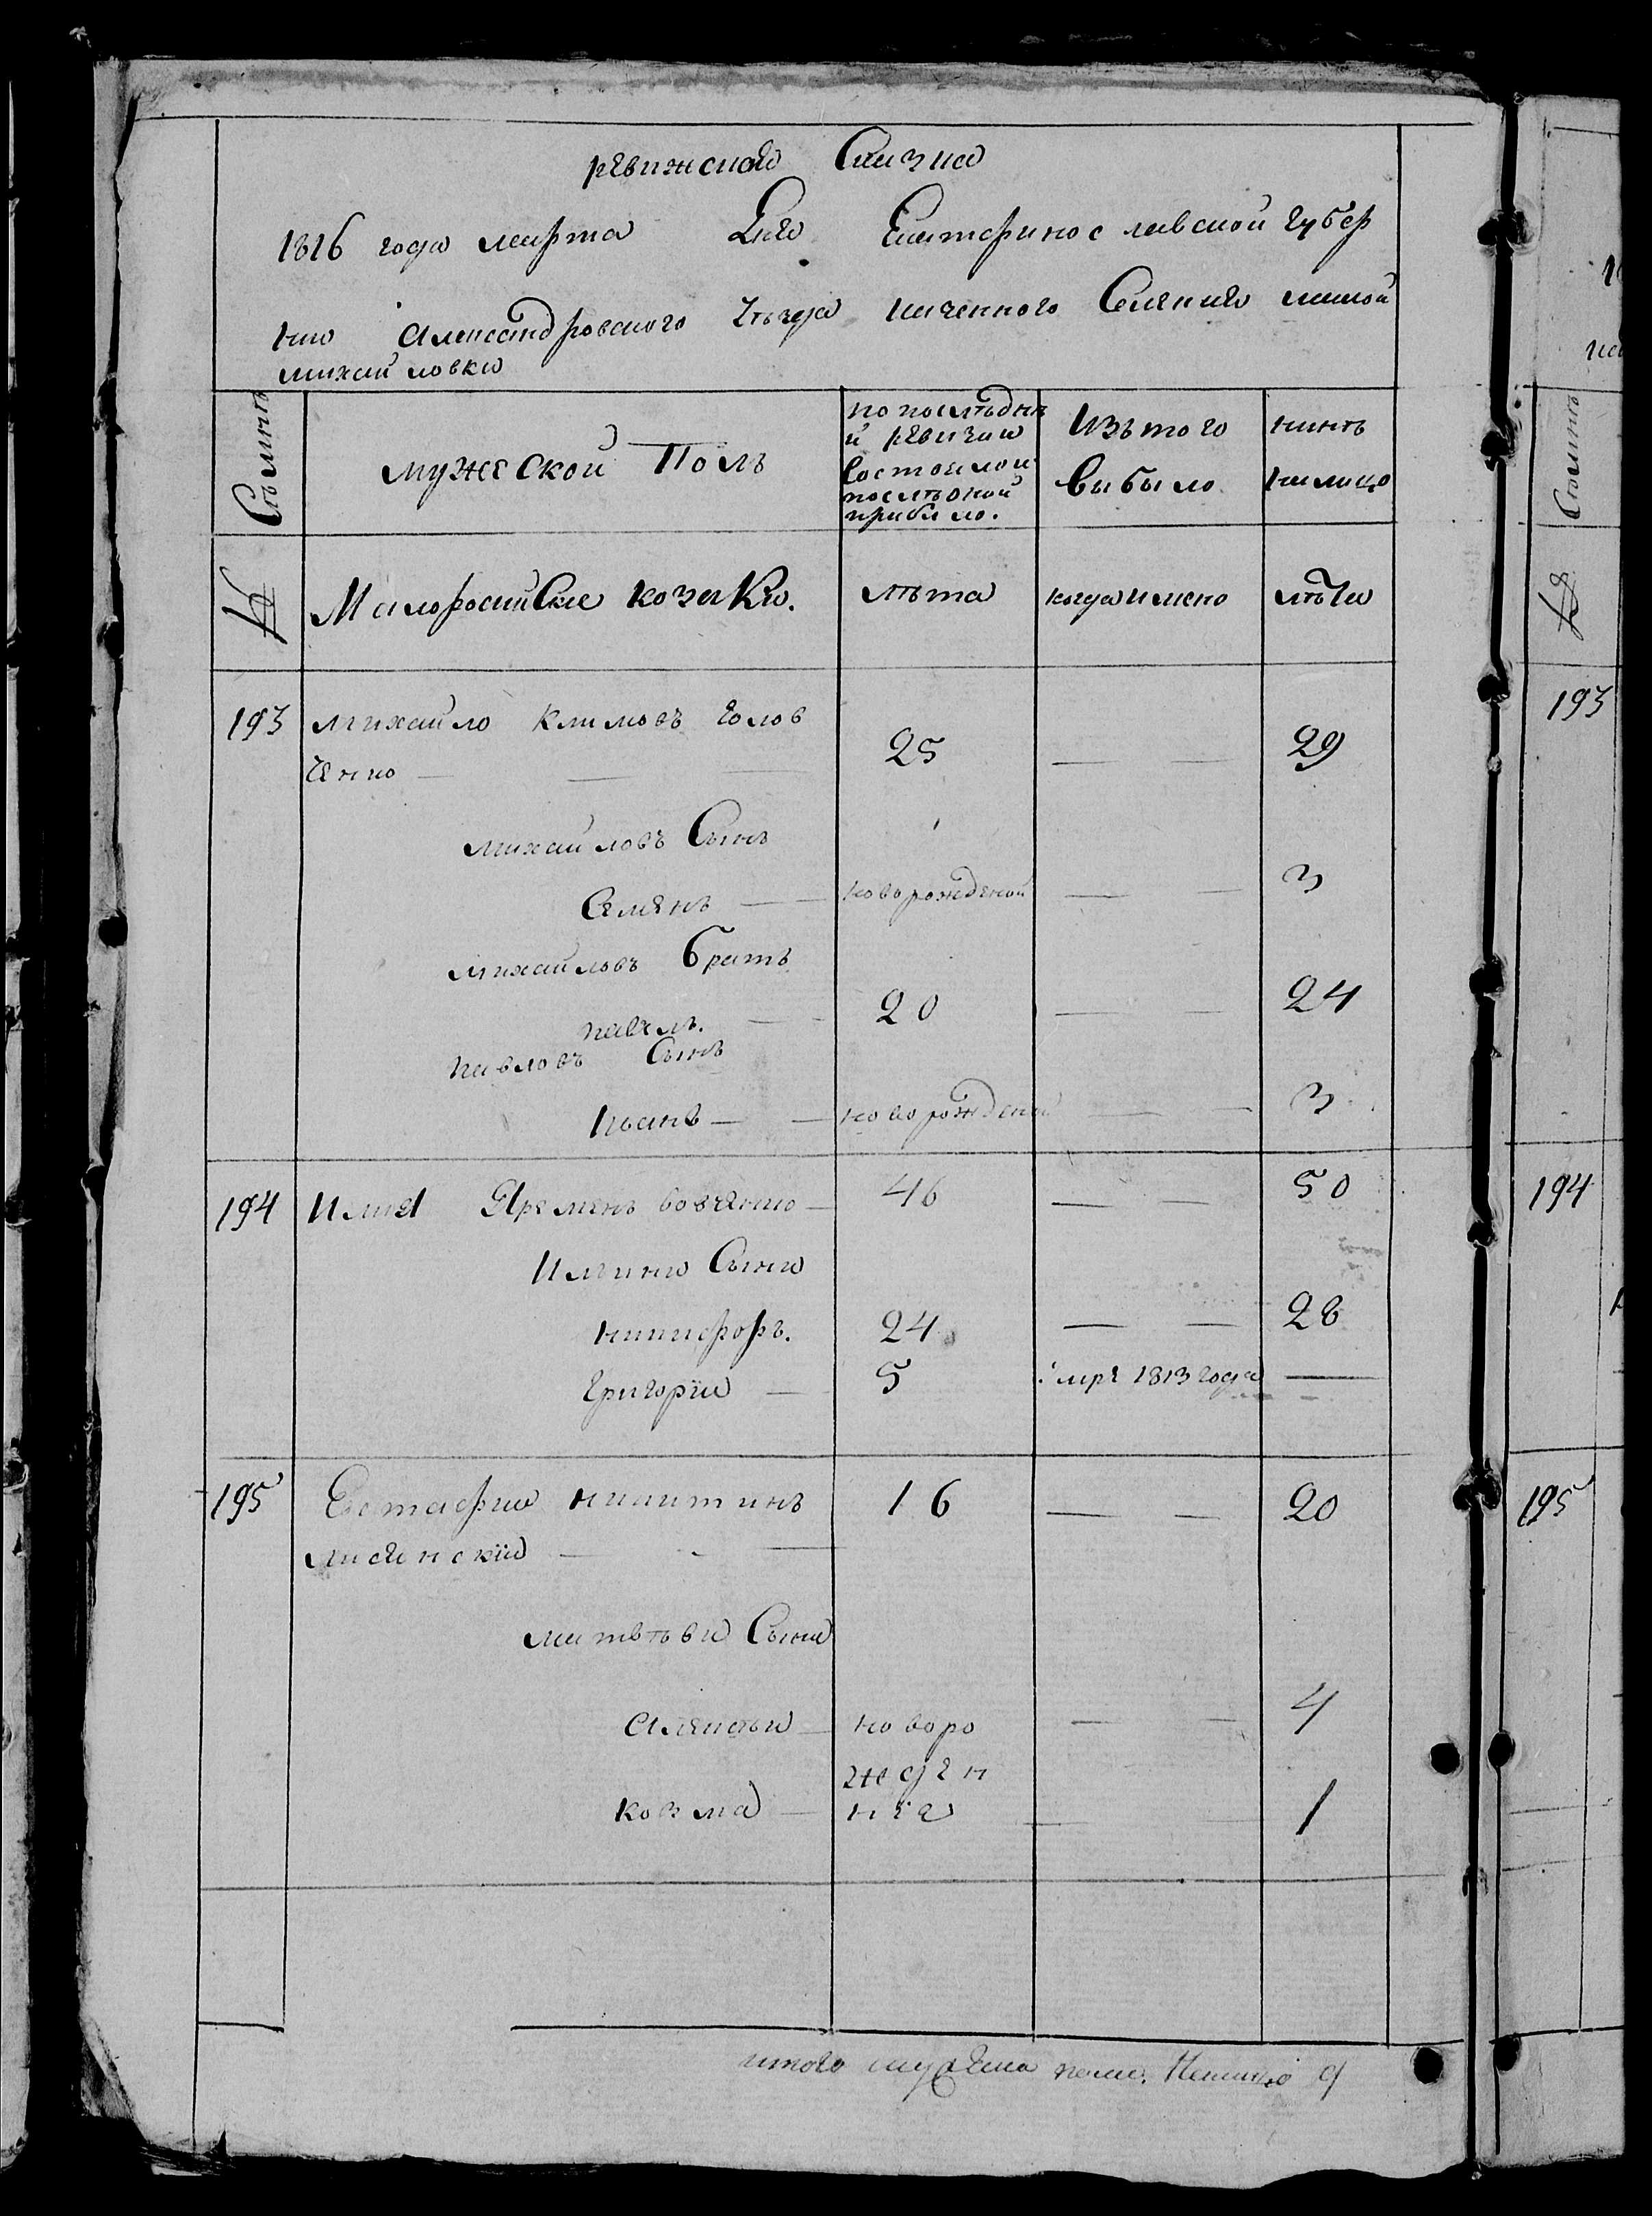 ревижская Сказка
1816 года марта Дня Екатеринославской губер
нии Александровского уѣзда казенного Селения малой
михайловки
Сѣмиѣ
мужеской Полъ
по последнѣ
й ревизии
состояло и
послѣ оной
прибыло.
Изъ того
выбыло
нинѣ
налицо
№
Малоросийские козаки.
лѣта
когда имено
лѣта
193
михайло климовъ голов
ченко
25
29
михайловъ Сынъ
Семенъ
новорожденой
3
михайловъ братъ
павелъ.
20
24
павловъ Сынъ
Иванъ
новорожденой
3
194
Илия Яременъ вовченко
46
50
Илины Сыны
никифоръ.
24
28
григорий
5
умре 1813 года
195
Евстафии никитинъ
лисенский
16
20
матвѣви Сыни
алексѣи
новоро
4
жден
козма
ныя
1
итого мужеска пола. Налицо 9
193
194
195